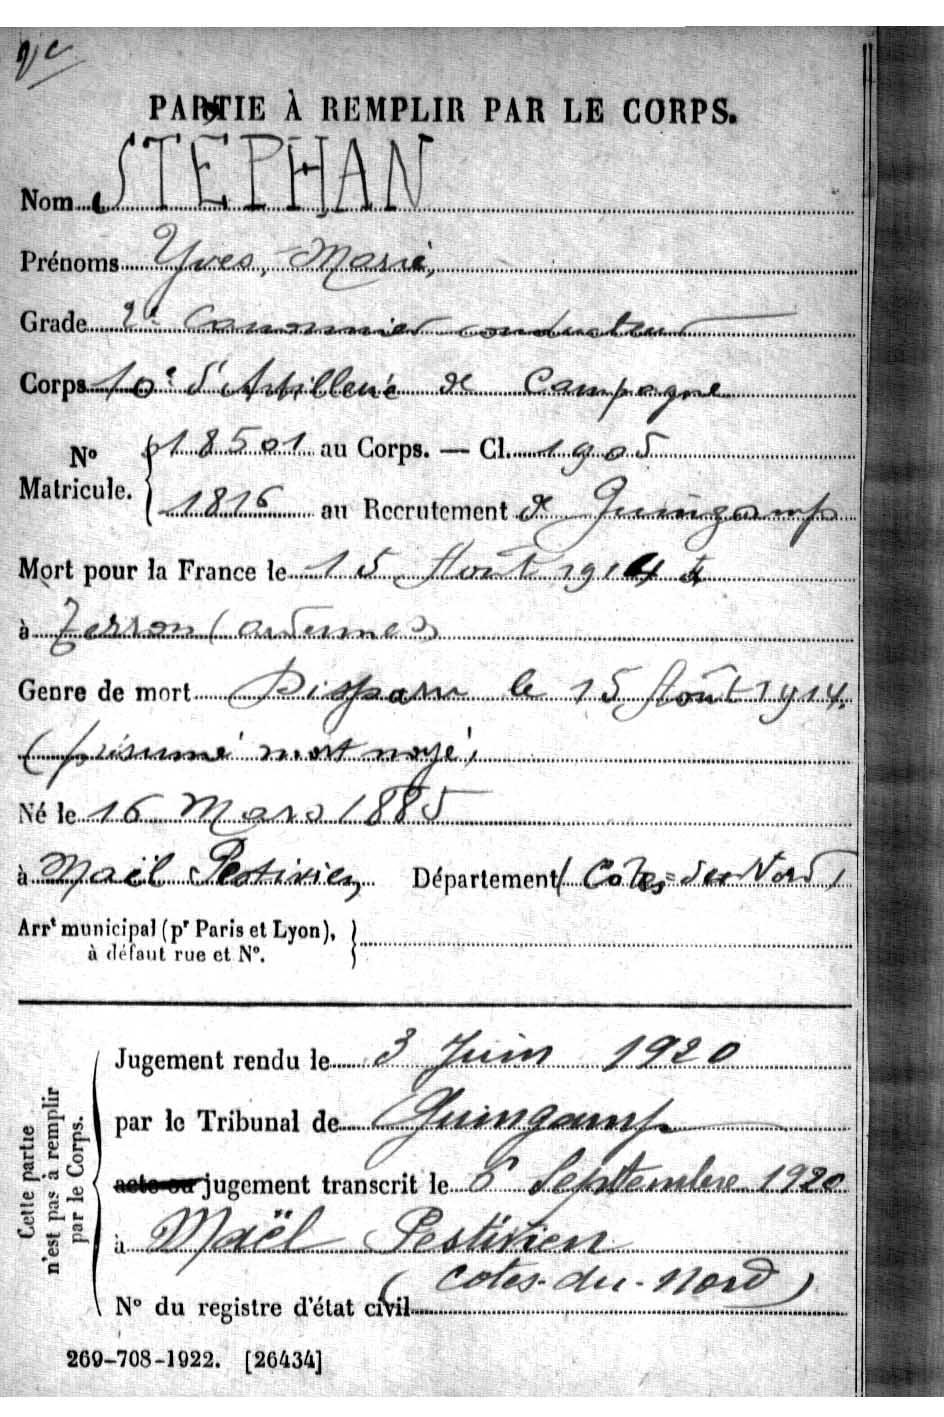 PARTIE À REMPLIR PAR LE CORPS.
Nom STEPHAN
Prénoms Yves, Marie,
Grade 2e Canonnier conducteur
Corps 10e d'Artillerie de Campagne
No Matricule. 18501 au Corps. — Cl. 1905
1816 au Recrutement de Guingamp
Mort pour la France le 15 Août 1914
à Terron (ardennes)
Genre de mort Disparu le 15 Août 1914.
(présumé mort noyé)
Né le 16 Mars 1885
à Maël Pestivien Département (Côtes-du-Nord)
Arrt municipal (pr Paris et Lyon),
à défaut rue et No.
Cette partie
n'est pas à remplir
par le Corps.
Jugement rendu le 3 Juin 1920
par le Tribunal de Guingamp
acte ou jugement transcrit le 6 Septembre 1920
à Maël Pestivien
(cotes-du-Nord)
No du registre d'état civil
269-708-1922. [26434]